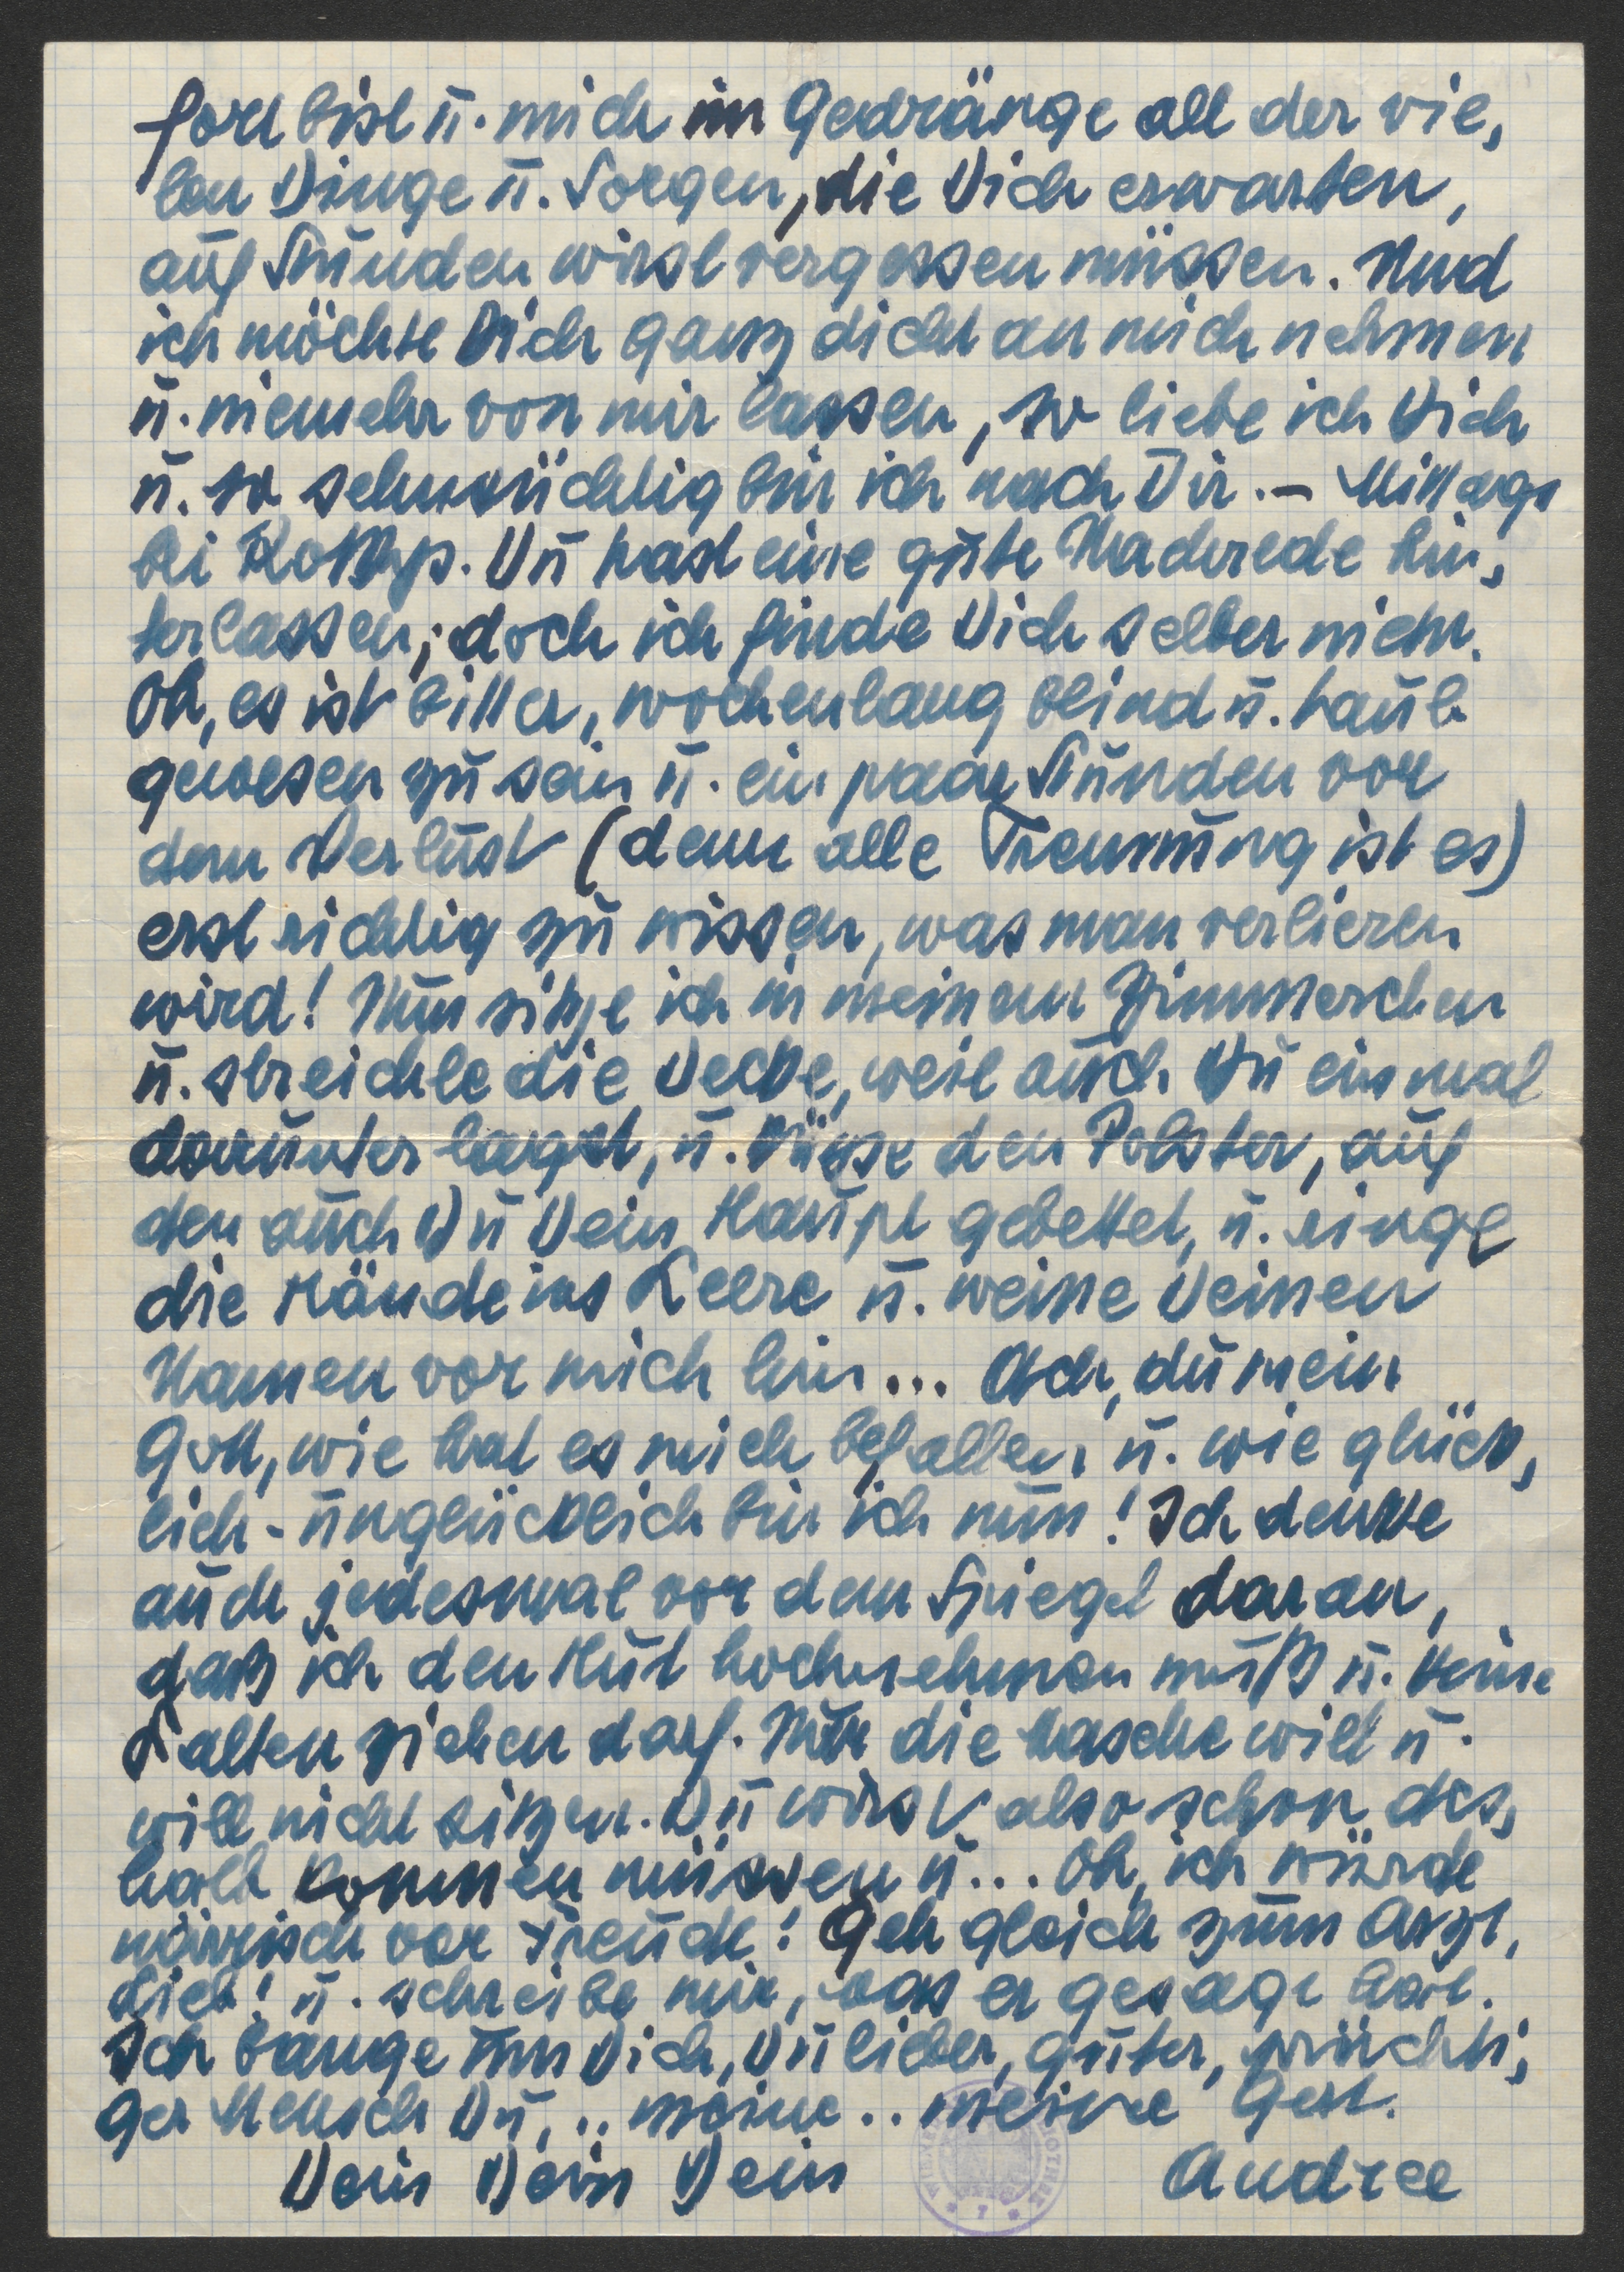 fort bist u. mich im Gedränge all der vie,
len Dinge u. Sorgen, die Dich erwarten,
auf Stunden wirst vergessen müssen. Und
ich möchte Dich ganz dicht an mich nehmen
u. niemehr von mir lassen, so liebe ich Dich
u. so sehnsüchtig bin ich nach Dir. – Mittags
bei Du hast eine gute Nachrede hin,
terlassen; doch ich finde Dich selber nicht.
Oh, es ist bitter, wochenlang blind u. taub
gewesen zu sein u. ein paar Stunden vor
dem Verlust (denn alle Trennung ist es)
erst richtig zu wissen, was man verlieren
wird! Nun sitze ich in meinem Zimmerchen
u. streichle die Decke, weil auch Du einmal
darunter lagst, u. küsse den Polster, auf
den auch Du Dein Haupt gebettet, u. ringe
die Hände ins Leere u. weine Deinen
Namen vor mich hin... Ach, du mein
Gott, wie hat es mich befallen u. wie glück,
lich-unglücklich bin ich nun! Ich denke
auch jedesmal vor dem Spiegel daran,
daß ich den Hut hochnehmen muß u. keine
Falten ziehen darf. Nur die Masche will u.
will nicht sitzen. Du wirst also schon des,
halb kommen müssen u... Oh, ich würde
närrisch vor Freude! Geh gleich zum Arzt,
Lieb! u. schreibe mir, was er gesagt hat.
Ich bange um Dich, Du lieber, guter, prächti,
ger Mensch Du, .. meine .. meine Gerl.
Dein Dein Dein Andree